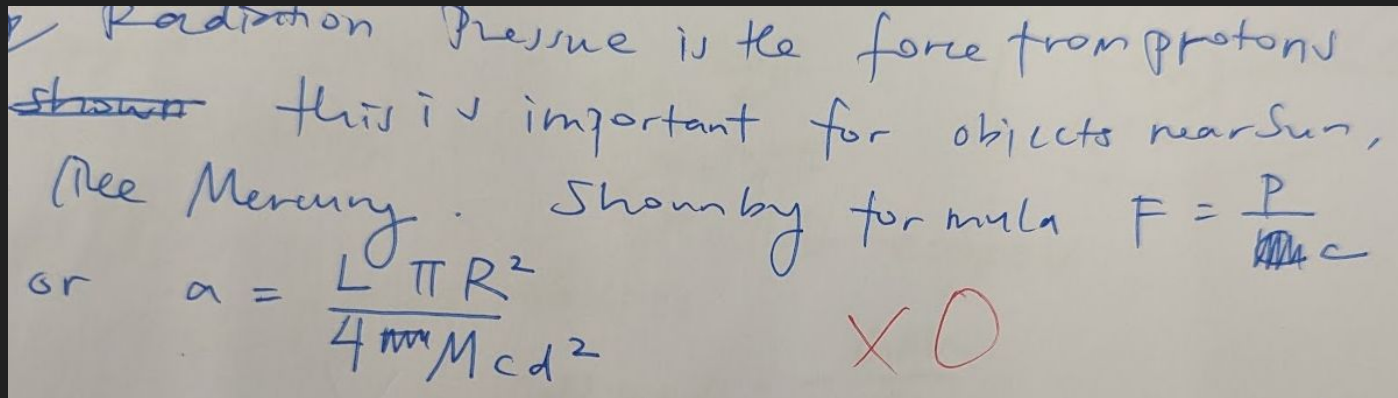 Radiation Pressue is the force from protons
shown this is important for objects near Sun,
like Mercury. Shown by formula F = P / c
or a = L π R² / 4 M c d²
X 0